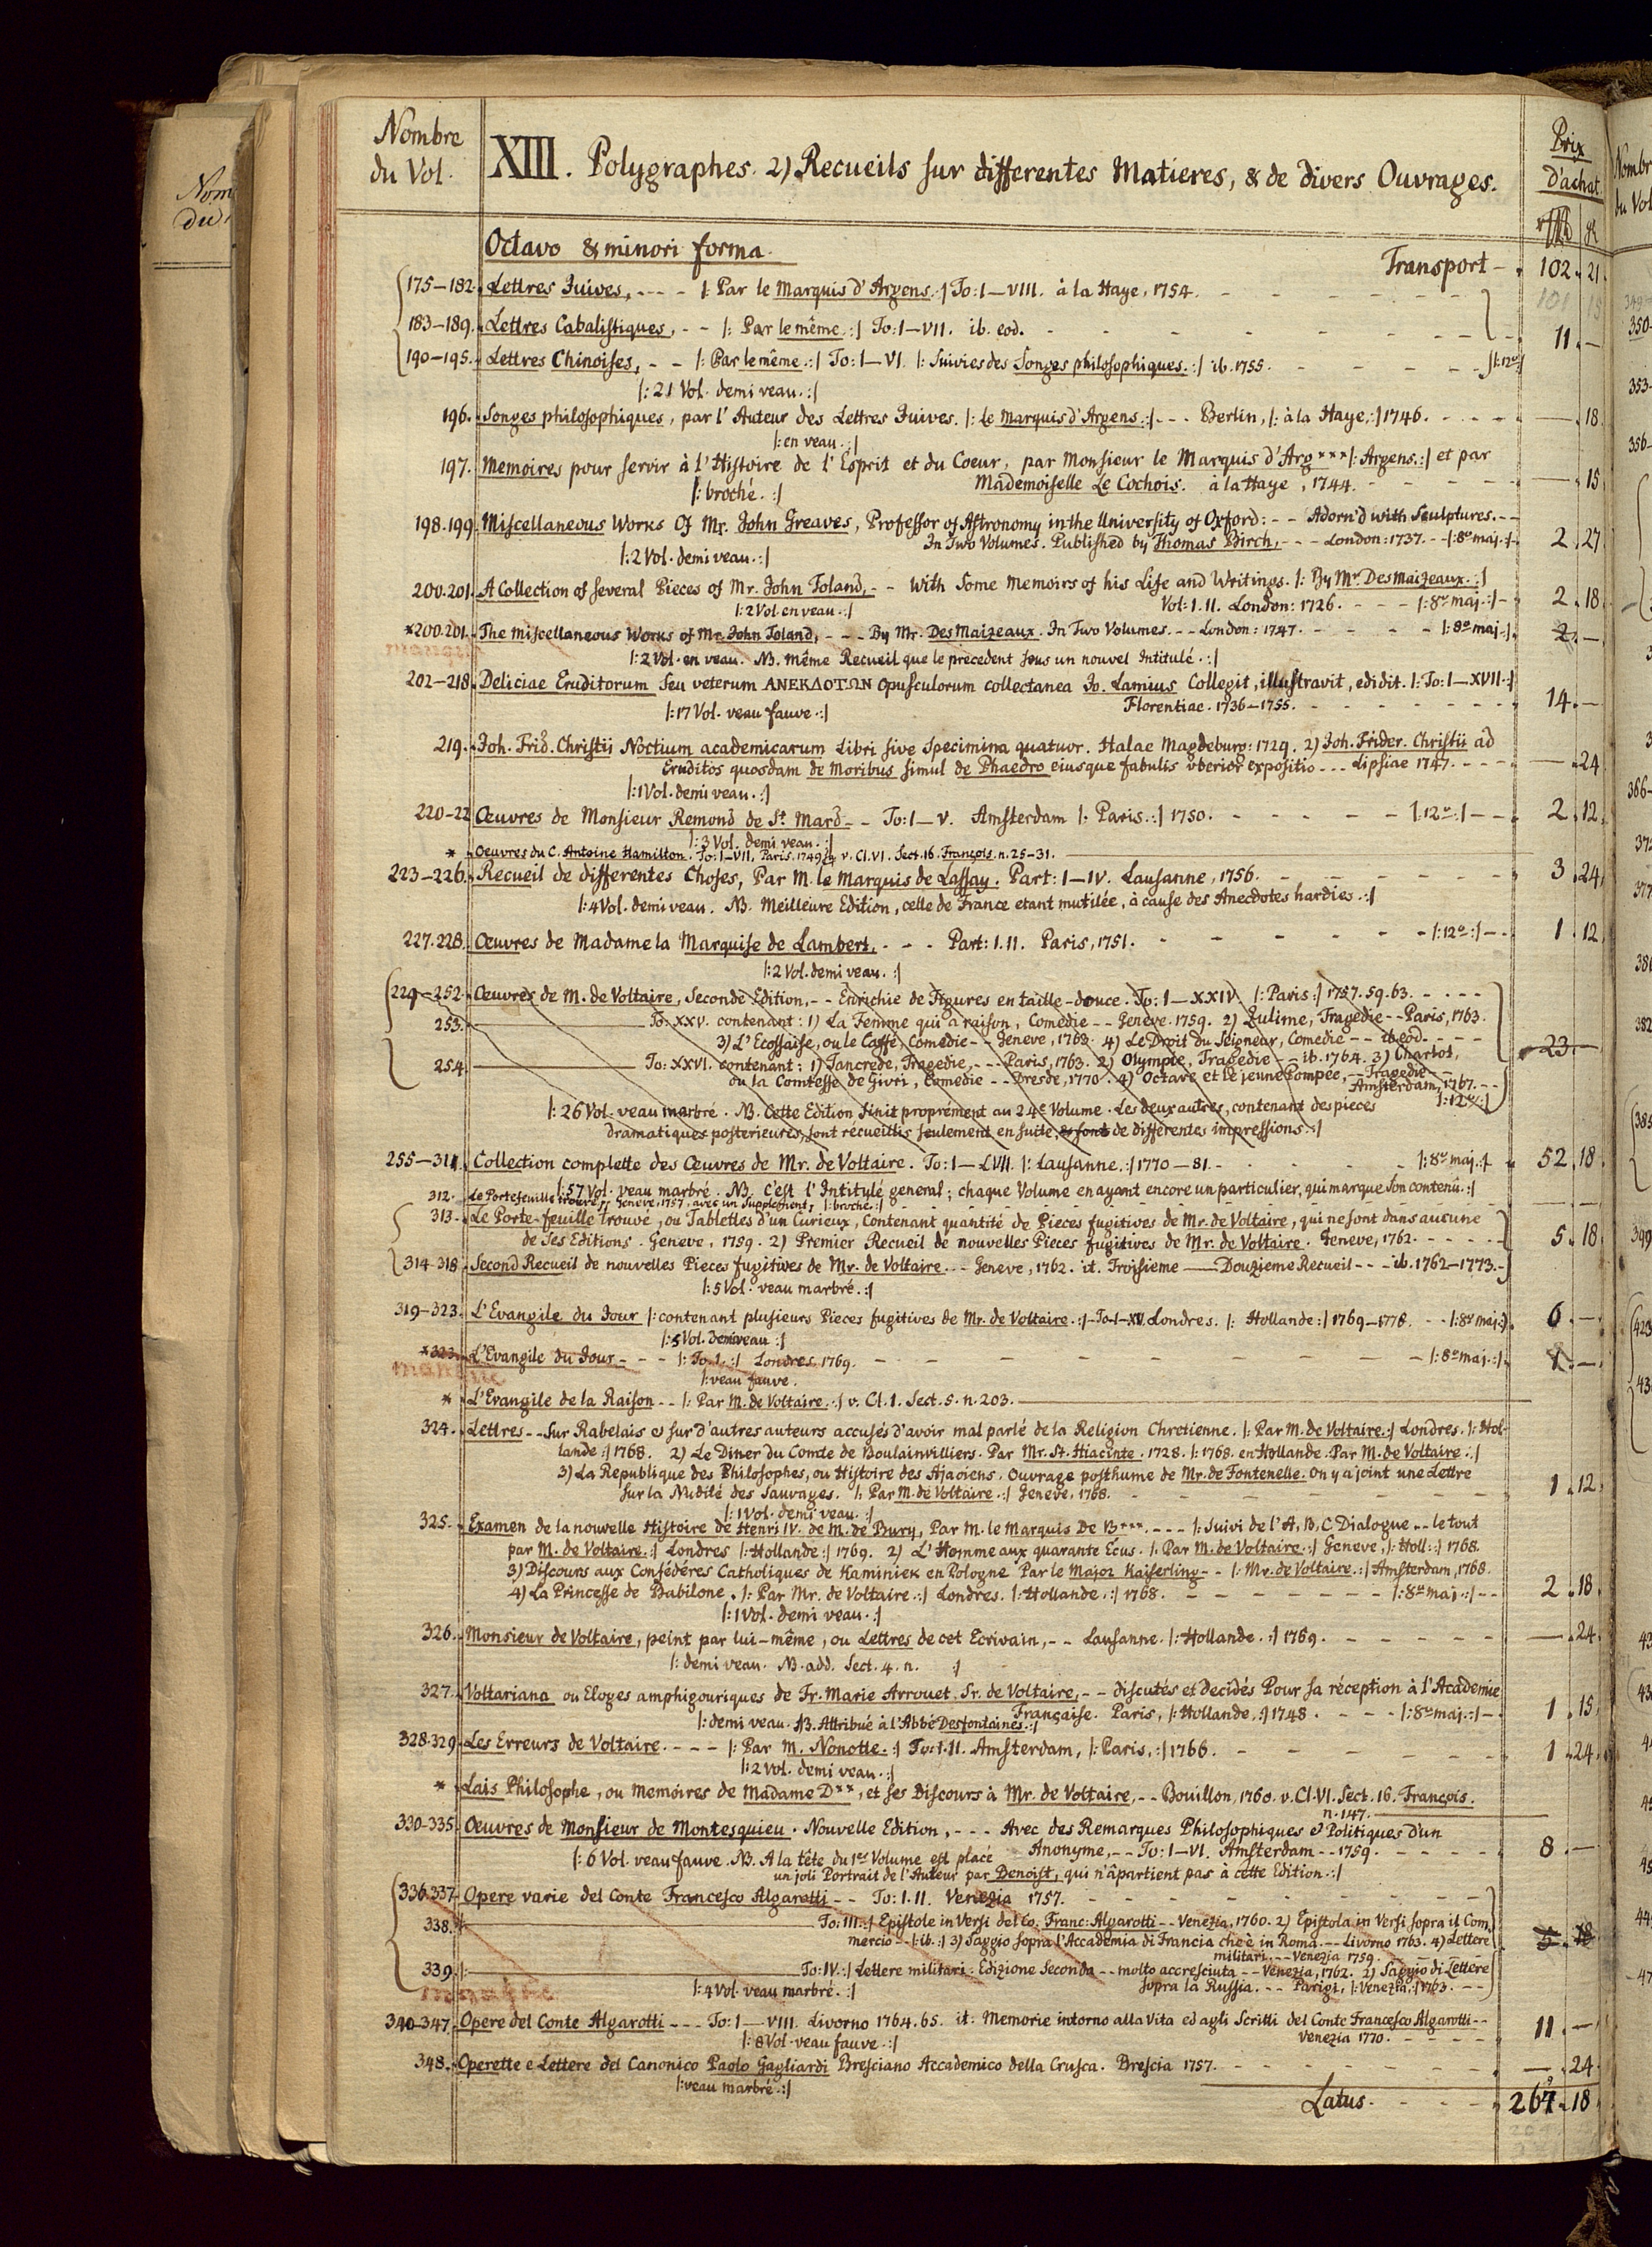 Nombre
du Vol.
XIII. Polygraphes. 2) Recueils sur differentes Matieres, & de divers Ouvrages.
Prix
d'achat
Octavo & minori forma.
Transport - 102. 21.
175–182. Lettres Juives, - - - |: Par le Marquis d'Argens. :| To: I–VIII. à la Haye, 1754.
183–189. Lettres Cabalistiques, - - |: Par le même. :| To: I–VII. ib. eod. 11. –
190–195. Lettres Chinoises, - - |: Par le même. :| To: I–VI. |: Suivies des Songes philosophiques. :| ib. 1755. |: 12º :|
|: 21 Vol. demi veau. :|
196. Songes philosophiques, par l'Auteur des Lettres Juives. |: Le Marquis d'Argens :| - - - Berlin, |: à la Haye, :| 1746. — 18.
|: en veau. :|
197. Memoires pour servir à l'Histoire de l'Esprit et du Coeur, par Monsieur le Marquis d'Arg*** |: Argens. :| et par
Mademoiselle Le Cochois. à la Haye, 1744. — 15.
|: broché. :|
198.199. Miscellaneous Works Of Mr. John Greaves, Professor of Astronomy in the University of Oxford: - - Adorn'd with Sculptures. - -
In Two Volumes. Published by Thomas Birch, - - - London: 1737. - - |: 8º maj. :| 2. 27.
|: 2 Vol. demi veau. :|
200.201. A Collection of several Pieces of Mr. John Toland, - - With some Memoirs of his Life and Writings. |: By Mr. Des Maizeaux. :|
Vol: I. II. London: 1726. - - - |: 8º maj. :| 2. 18.
|: 2 Vol. en veau. :|
*200.201. The miscellaneous Works of Mr. John Toland, - - - By Mr. Des Maizeaux. In Two Volumes. - - London: 1747. |: 8º maj. :| 2. –
|: 2 Vol. en veau. NB. même Recueil que le precedent sous un nouvel Intitulé. :|
202–218. Deliciae Eruditorum seu veterum ΑΝΕΚΔΟΤΩΝ opusculorum collectanea Jo. Lamius Collegit, illustravit, edidit. |: To: I–XVII. :|
Florentiae. 1736–1755. 14. –
|: 17 Vol. veau fauve. :|
219. Joh. Frid. Christii Noctium academicarum Libri sive Specimina quatuor. Halae Magdeburg: 1729. 2) Joh. Frider. Christii ad
Eruditos quosdam de Moribus simul de Phaedro eiusque fabulis vberior expositio - - - Lipsiae 1747. — 24
|: 1 Vol. demi veau. :|
220–22 Œuvres de Monsieur Remond de St. Mard - - To: I–V. Amsterdam |: Paris. :| 1750. |: 12º :| 2. 12.
|: 3 Vol. demi veau. :|
* Oeuvres du C. Antoine Hamilton. To: I–VII. Paris. 1749. v. Cl. VI. Sect. 16. François. n. 25–31.
223–226. Recueil de differentes Choses, Par M. le Marquis de Lassay. Part: I–IV. Lausanne, 1756. 3. 24.
|: 4 Vol. demi veau. NB. Meilleure Edition, celle de France etant mutilée, à cause des Anecdotes hardies. :|
227.228. Œuvres de Madame la Marquise de Lambert, - - - Part: I. II. Paris, 1751. |: 12º :| 1. 12.
|: 2 Vol. demi veau. :|
229–252. Œuvres de M. de Voltaire, Seconde Edition, - - Enrichie de Figures en taille-douce. To: I–XXIV. |: Paris :| 1757. 59. 63.
253. To: XXV. contenant: 1) La Femme qui a raison, Comedie - - Geneve. 1759. 2) Zulime, Tragedie - - Paris, 1763.
3) L'Ecossaise, ou le Caffé, Comedie - - Geneve, 1763. 4) Le Droit du Seigneur, Comedie - - ib. eod. 23. –
254. To: XXVI. contenant: 1) Tancrede, Tragedie, - - - Paris, 1763. 2) Olympie, Tragedie - - ib. 1764. 3) Charlot,
ou la Comtesse de Givri, Comedie - - Dresde, 1770. 4) Octave et le jeune Pompée, - Tragedie - -
Amsterdam, 1767. - -
|: 26 Vol. veau marbré. NB. Cette Edition finit proprément au 24e Volume. Les deux autres, contenant des pieces |: 12º :|
dramatiques posterieures, sont recueillis seulement en suite, & sont de differentes impressions. :|
255–311. Collection complette des Œuvres de Mr. de Voltaire. To: I–LVII. |: Lausanne. :| 1770–81. |: 8º maj. :| 52. 18.
|: 57 Vol. veau marbré. NB. C'est l'Intitulé general; chaque Volume en ayant encore un particulier, qui marque son contenû. :|
312. Le Portefeuille trouvé, Geneve, 1757, avec un Supplement, |: broché. :|
313. Le Porte-feuille Trouvé, ou Tablettes d'un Curieux, Contenant quantité de Pieces fugitives de Mr. de Voltaire, qui ne sont dans aucune
de ses Editions. Geneve, 1759. 2) Premier Recueil de nouvelles Pieces fugitives de Mr. de Voltaire. Geneve, 1762. 5. 18.
314–318. Second Recueil de nouvelles Pieces fugitives de Mr. de Voltaire. - - Geneve, 1762. it. Troisieme — Douzieme Recueil - - - ib. 1762–1773.
|: 5 Vol. veau marbré. :|
319–323. L'Evangile du Jour |: contenant plusieurs Pieces fugitives de Mr. de Voltaire. :| - To. I–XV. Londres. |: Hollande :| 1769–1778. - - |: 8º maj. :| 6. –
|: 5 Vol. demi veau :|
*323. L'Evangile du Jour - - - |: To. I. :| Londres. 1769. |: 8º maj. :| 1. –
manque
|: veau fauve.
* L'Evangile de la Raison - - |: Par M. de Voltaire. :| v. Cl. I. Sect. 5. n. 203.
324. Lettres - - Sur Rabelais & sur d'autres auteurs accusés d'avoir mal parlé de la Religion Chretienne. |: Par M. de Voltaire. :| Londres. |: Hol-
lande :| 1768. 2) Le Diner du Comte de Boulainvilliers. Par Mr. St. Hiacinte. 1728. |: 1768. en Hollande. Par M. de Voltaire. :|
3) La Republique des Philosophes, ou Histoire des Ajaoiens. Ouvrage posthume de Mr. de Fontenelle. On y a joint une Lettre
sur la Nudité des Sauvages. |: Par M. de Voltaire. :| Geneve, 1768. 1. 12.
|: 1 Vol. demi veau. :|
325. Examen de la nouvelle Histoire de Henri IV. de M. de Bury, Par M. le Marquis De B***. - - - |: Suivi de l'A, B, C Dialogue - - le tout
par M. de Voltaire. :| Londres |: Hollande :| 1769. 2) L'Homme aux quarante Ecus. |: Par M. de Voltaire. :| Geneve, |: Holl: :| 1768.
3) Discours aux Confédéres Catholiques de Kaminiek en Pologne Par le Major Kaiserling - - |: Mr. de Voltaire. :| Amsterdam, 1768.
4) La Princesse de Babilone. |: Par Mr. de Voltaire. :| Londres. |: Hollande. :| 1768. |: 8º maj. :| 2. 18.
|: 1 Vol. demi veau. :|
326. Monsieur de Voltaire, peint par lui-même, ou Lettres de cet Ecrivain, - - Lausanne. |: Hollande. :| 1769. — 24.
|: demi veau. NB. add. Sect. 4. n. :|
327. Voltariana ou Eloges amphigouriques de Fr. Marie Arrouet. Sr. de Voltaire, - - discutés et decidés Pour sa réception à l'Academie
Française. Paris, |: Hollande, :| 1748. |: 8º maj. :| 1. 15.
|: demi veau. NB. Attribué à l'Abbé Desfontaines. :|
328.329. Les Erreurs de Voltaire. - - - |: Par M. Nonotte. :| To: I. II. Amsterdam, |: Paris, :| 1766. 1. 24.
|: 2 Vol. demi veau. :|
* Lais Philosophe, ou Memoires de Madame D**, et ses Discours à Mr. de Voltaire, - - Bouillon, 1760. v. Cl. VI. Sect. 16. François.
n. 147.
330–335. Œuvres de Monsieur de Montesquieu. Nouvelle Edition, - - - Avec des Remarques Philosophiques & Politiques d'un
Anonyme, - - To: I–VI. Amsterdam - - 1759. 8. –
|: 6 Vol. veau fauve. NB. A la tête du 1er Volume est placé
un joli Portrait de l'Auteur par Denoist, qui n'âpartient pas à cette Edition. :|
336.337. Opere varie del Conte Francesco Algarotti - - To: I. II. Venezia 1757.
338. To: III. :| Epistole in Versi del Co: Franc: Algarotti - - Venezia, 1760. 2) Epistola in Versi sopra il Com,
mercio - - |: ib. :| 3) Saggio sopra l'Accademia di Francia che è in Roma. - - Livorno 1763. 4) Lettere 5. 18
militari. - - Venezia 1759.
339. |: To: IV. :| Lettere militari. Edizione Seconda - - molto accresciuta - - Venezia, 1762. 2) Saggio di Lettere
sopra la Russia. - - Parigi, |: Venezia, :| 1763. - -
manque
|: 4 Vol. veau marbré. :|
340–347. Opere del Conte Algarotti - - - To: I–VIII. Livorno 1764. 65. it. Memorie intorno alla Vita ed agli Scritti del Conte Francesco Algarotti - -
Venezia 1770. 11. –
|: 8 Vol. veau fauve. :|
348. Operette e Lettere del Canonico Paolo Gagliardi Bresciano Accademico della Crusca. Brescia 1757. — 24.
|: veau marbré. :|
Latus. 267. 18